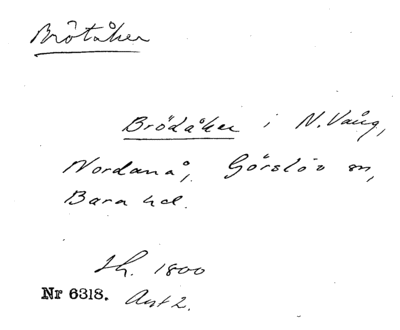 Brötåker
Brödåker i N. Vång,
Nordanå, Görslöv sn,
Bara hd.
Sk. 1800
Nr 6318. Avst 2.